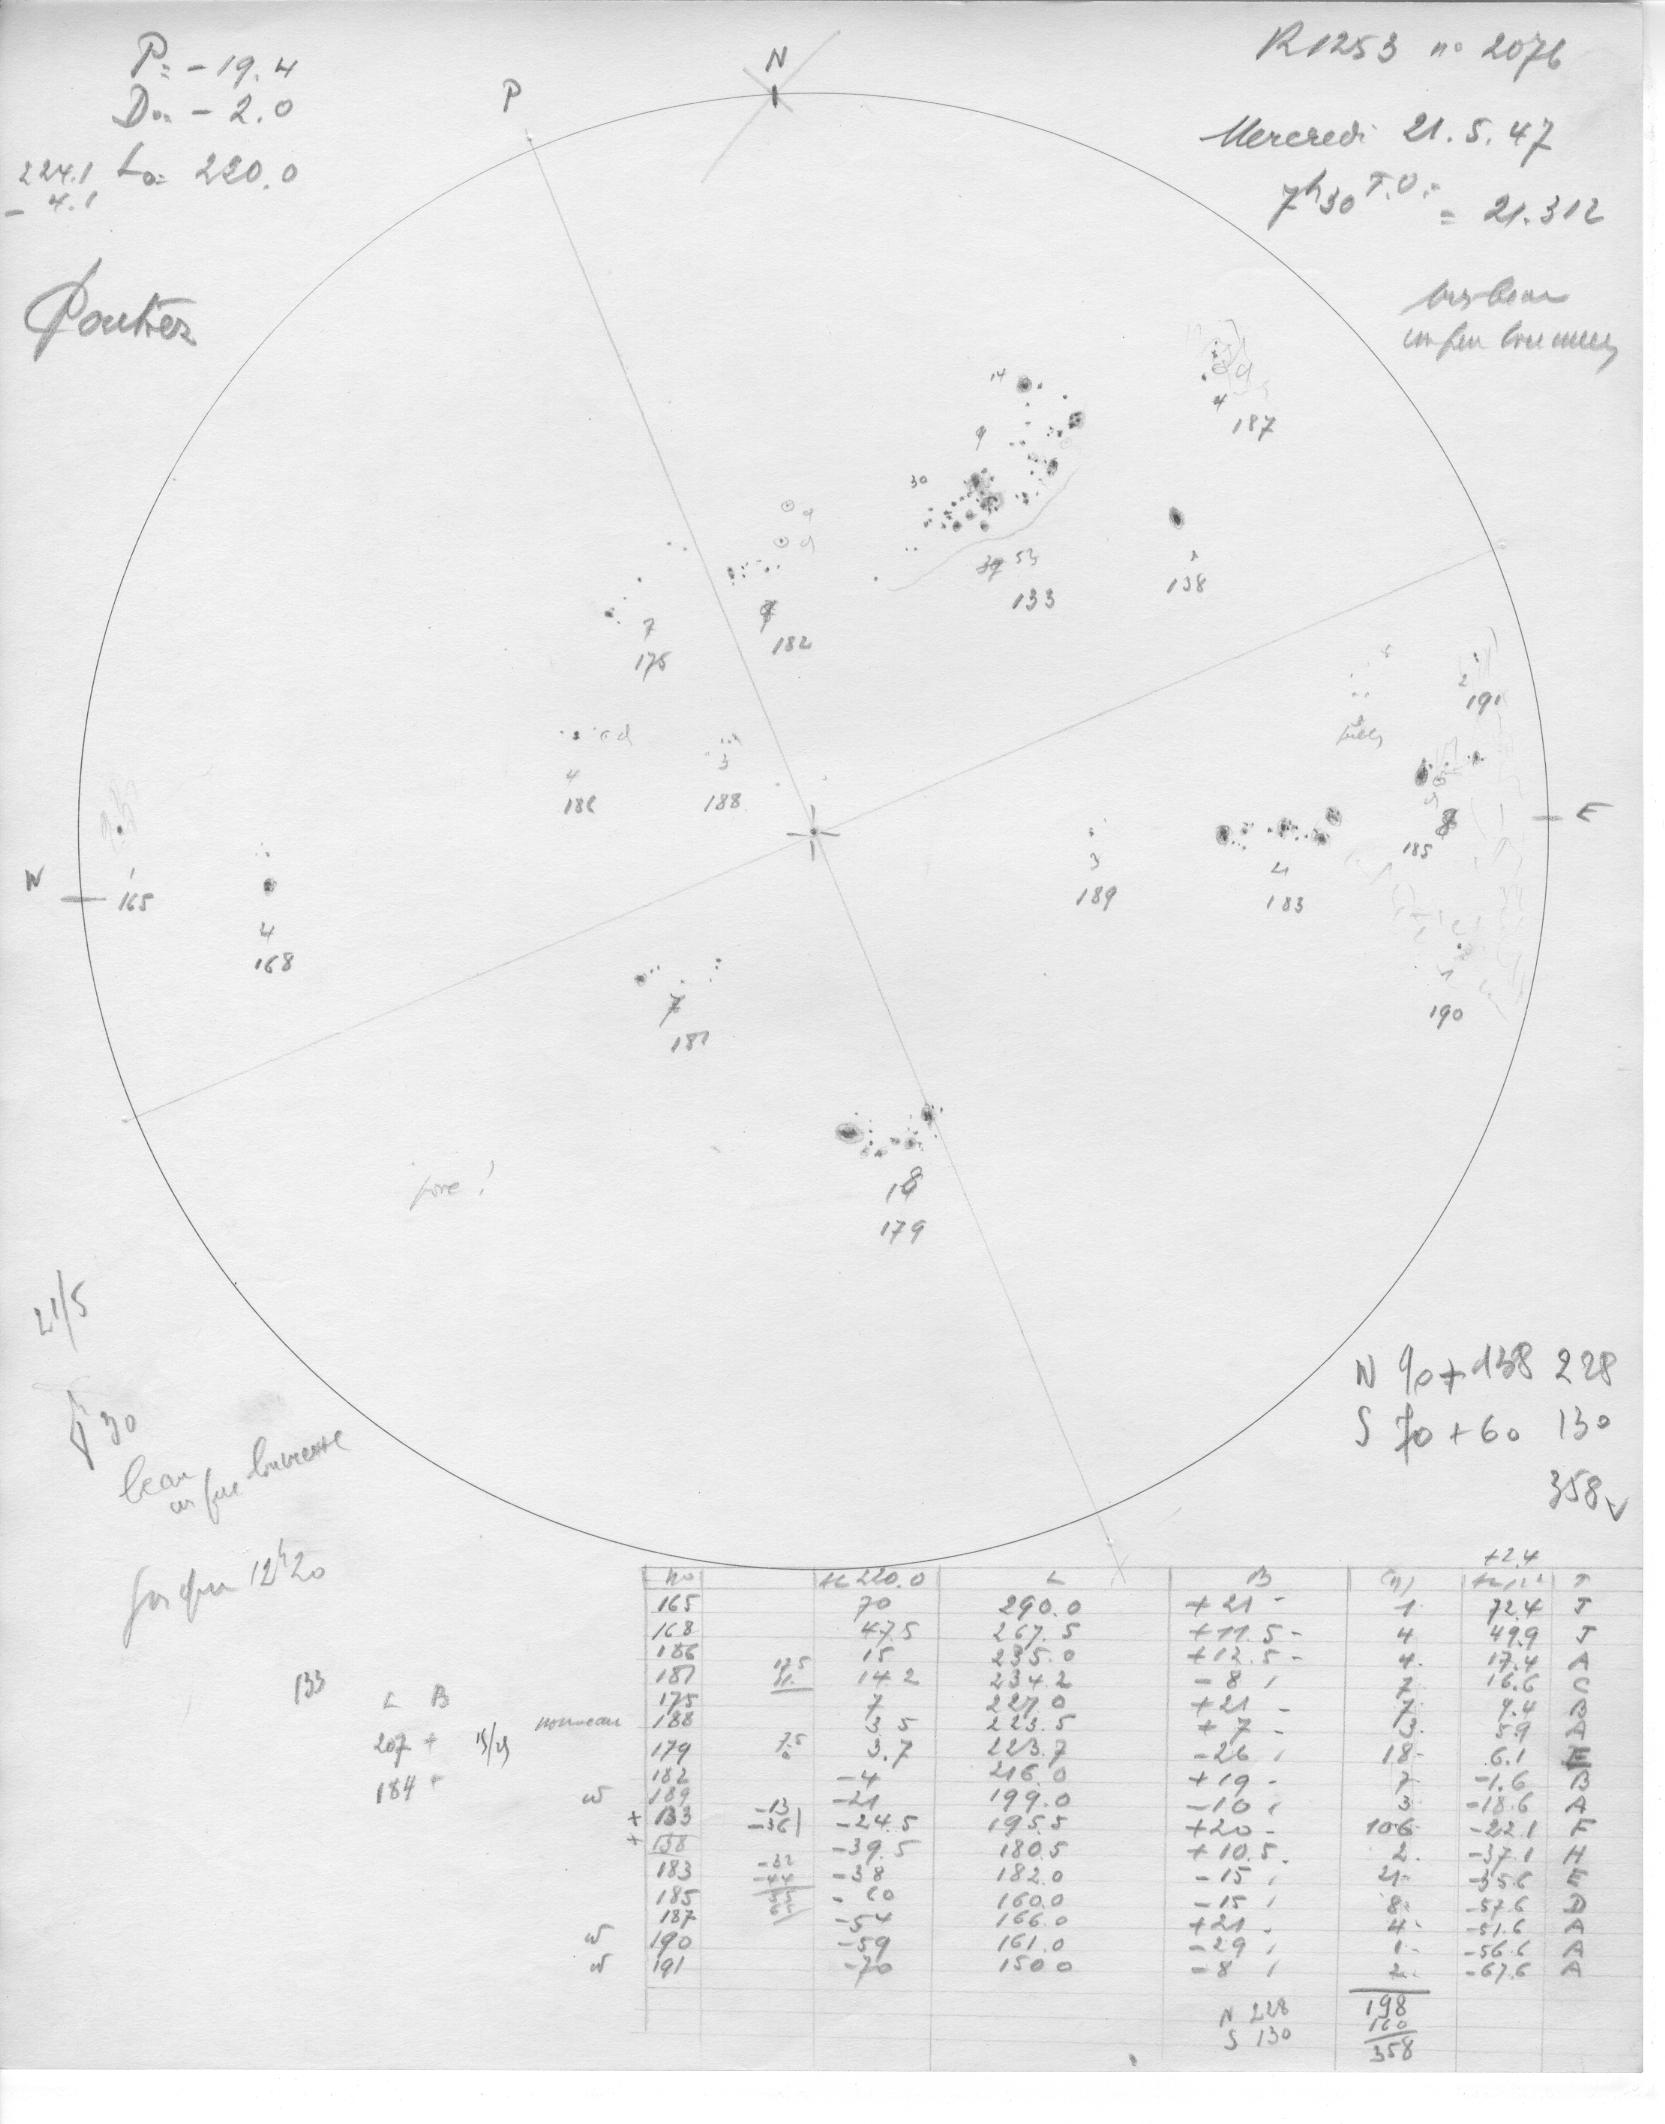 P= -19.4
Do= -2.0
224.1 Lo= 220.0
- 4.1
N
P
R1253 no 2076
Mercredi 21.5.47
7h30 T.U.
= 21.312
14
9
30
4
187
53
133
1
138
7
175
182
4
186
3
188
2
191
8
185
3
189
21
183
1
190
E
W
1
165
4
168
7
187
18
179
21/5
30
beau
un peu
jusque 12h20
N 90+138 228
S 70+60 130
358
133
L B
207 + 15/25
184 +
nouveau
+2.4
no 220.0 L B T
165 70 290.0 +21 1 72.4 J
168 47.5 267.5 +11.5 4 49.9 J
186 15 235.0 +12.5 4 17.4 A
187 14.2 234.2 -8 7 16.6 C
175 7 227.0 +21 7 9.4 B
188 3.5 223.5 +7 3 5.9 A
179 3.7 223.7 -26 18 6.1 E
182 -4 216.0 +19 7 -1.6 B
189 -21 199.0 -10 3 -18.6 A
+ 133 -13 -36 -24.5 195.5 +20 106 -22.1 F
+ 138 -39.5 180.5 +10.5 2 -37.1 H
183 -32 -44 -38 182.0 -15 21 -35.6 E
185 -60 160.0 -15 8 -57.6 D
187 -54 166.0 +21 4 -51.6 A
190 -59 161.0 -29 1 -56.6 A
191 -70 150.0 -8 2 -67.6 A
N 228 198
S 130 160
358